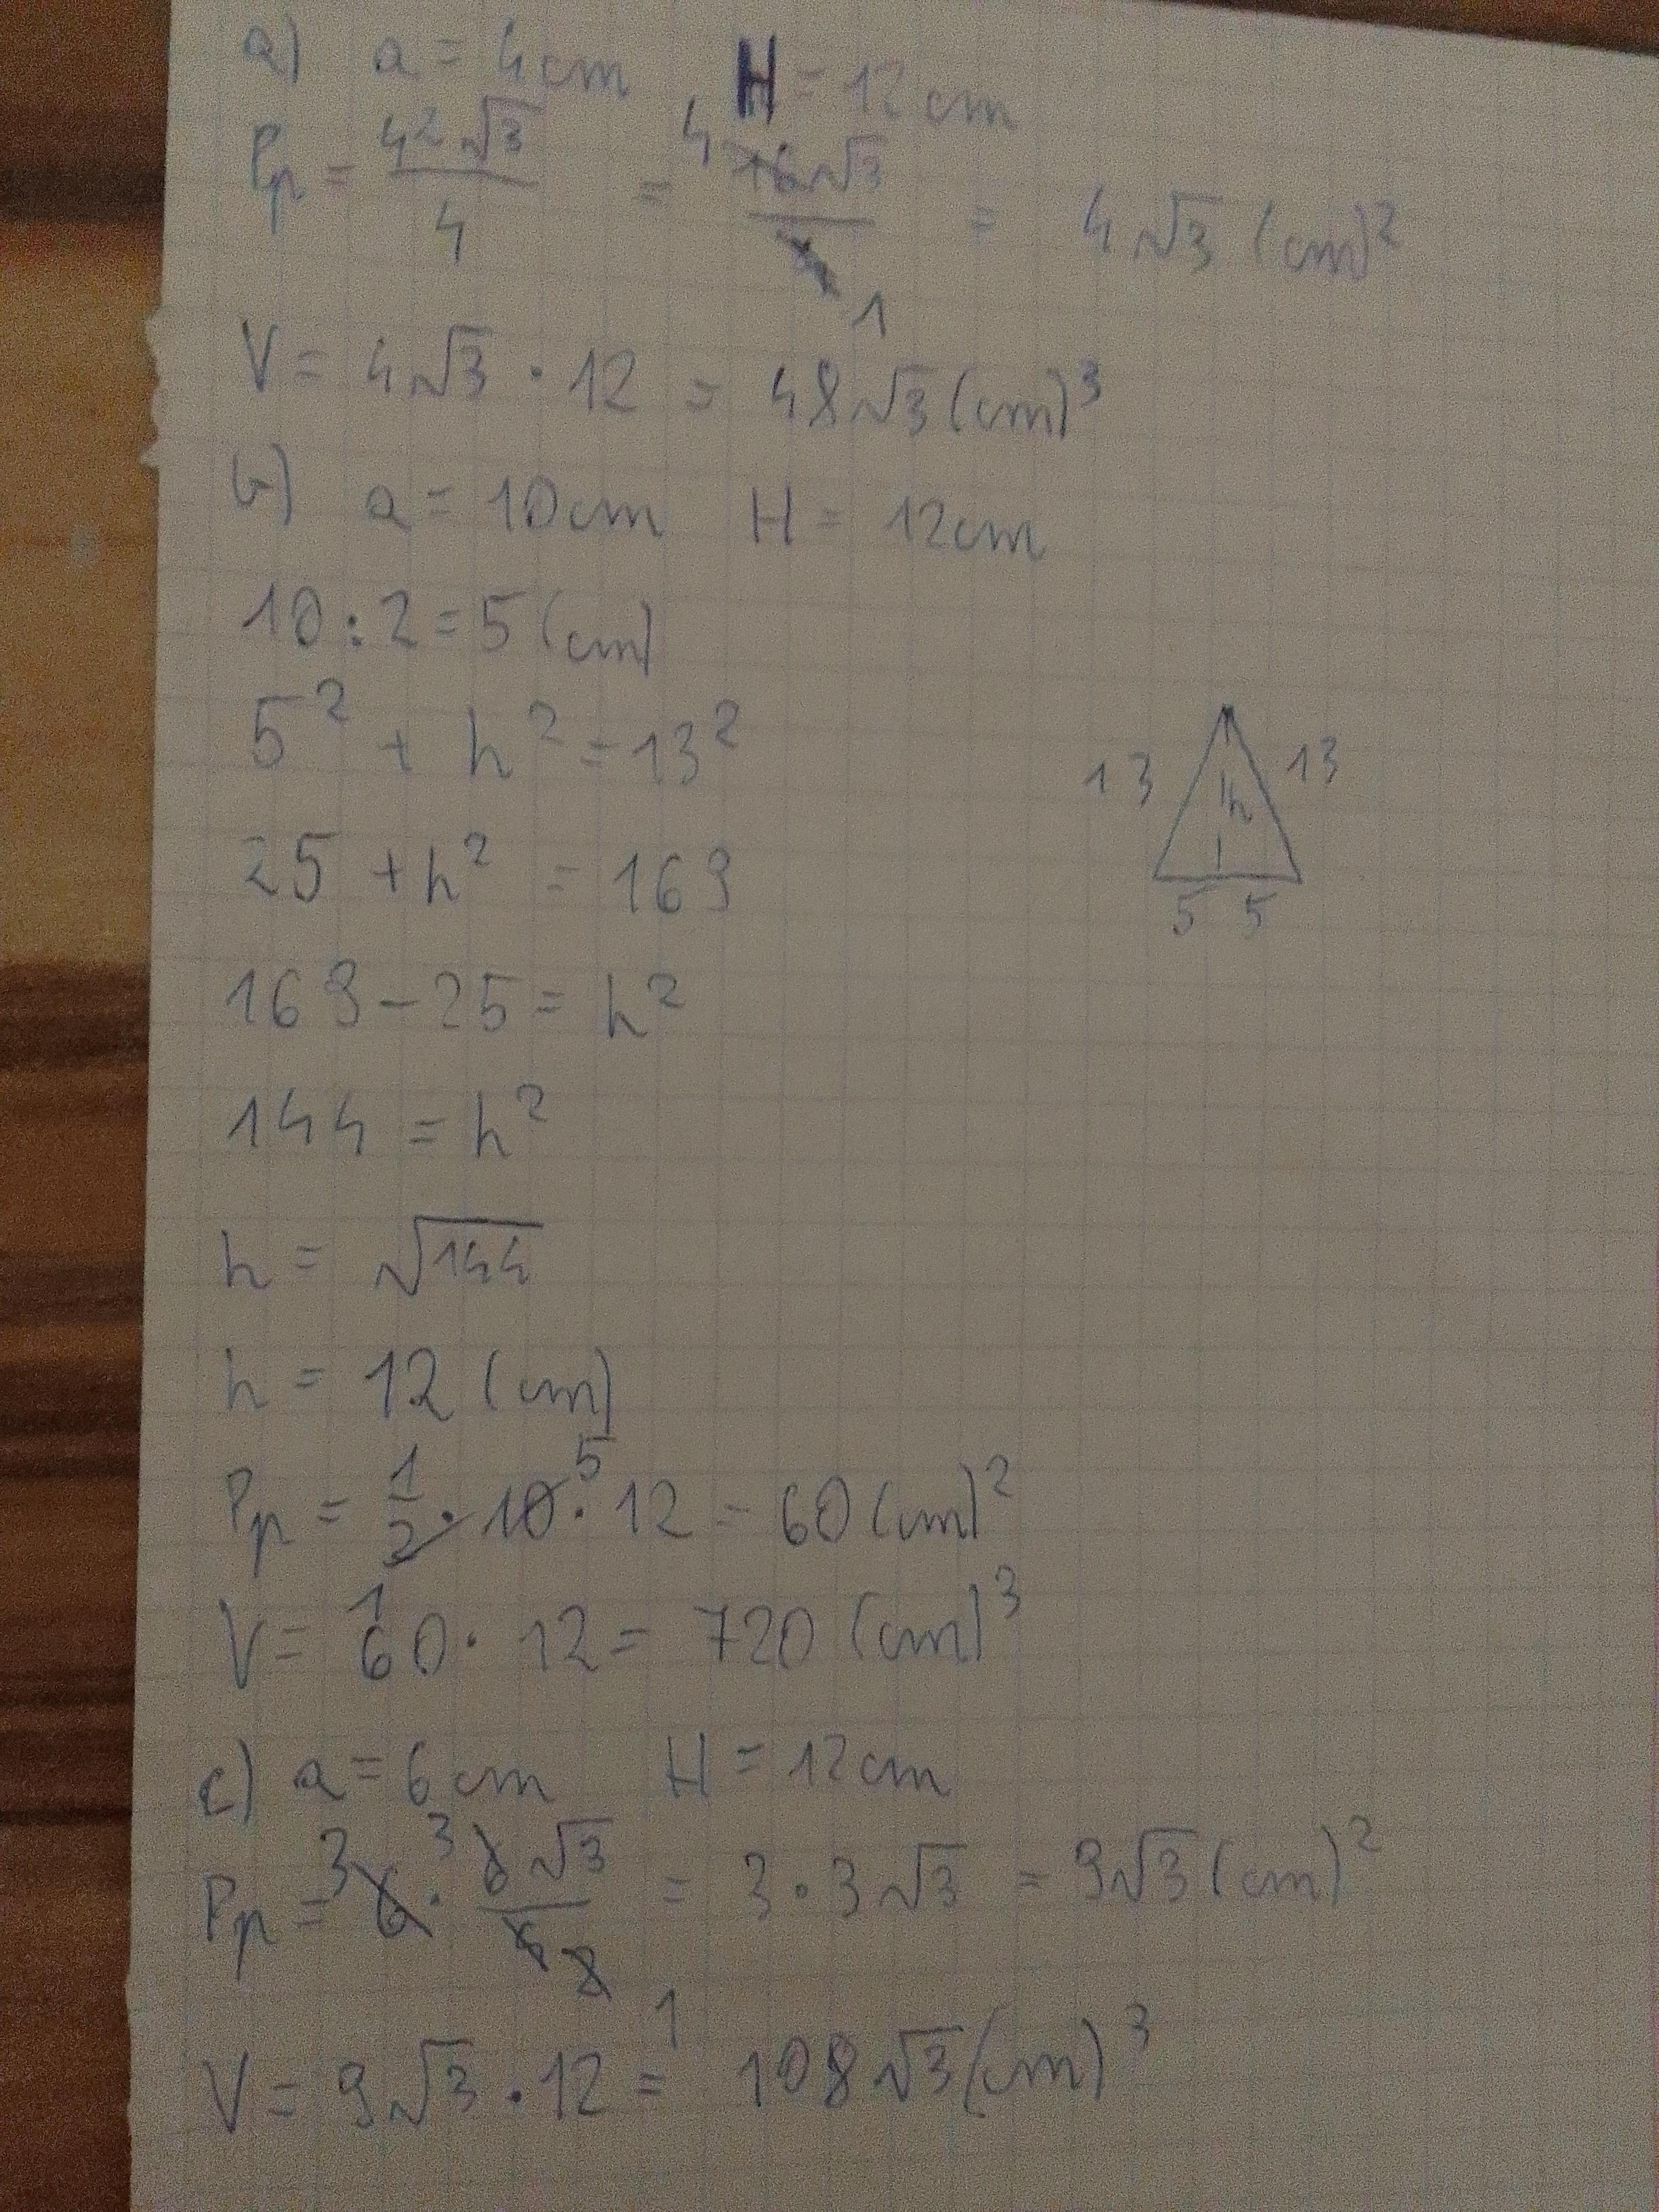 a) a = 4cm H = 12cm
Pp = 4²√3/4 = 4 16√3/4 1 = 4√3 (cm)²
V = 4√3 · 12 = 48√3 (cm)³
b) a = 10cm H = 12cm
10 : 2 = 5 (cm)
5² + h² = 13²
13 h 13
25 + h² = 169
5 5
169 - 25 = h²
144 = h²
h = √144
h = 12 (cm)
Pp = 1/2 1 · 10 5 · 12 = 60 (cm)²
V = 60 · 12 = 720 (cm)³
c) a = 6cm H = 12cm
Pp = 3 6 · 3 6√3/4 2 1 = 3 · 3√3 = 9√3 (cm)²
V = 9√3 · 12 = 108√3 (cm)³